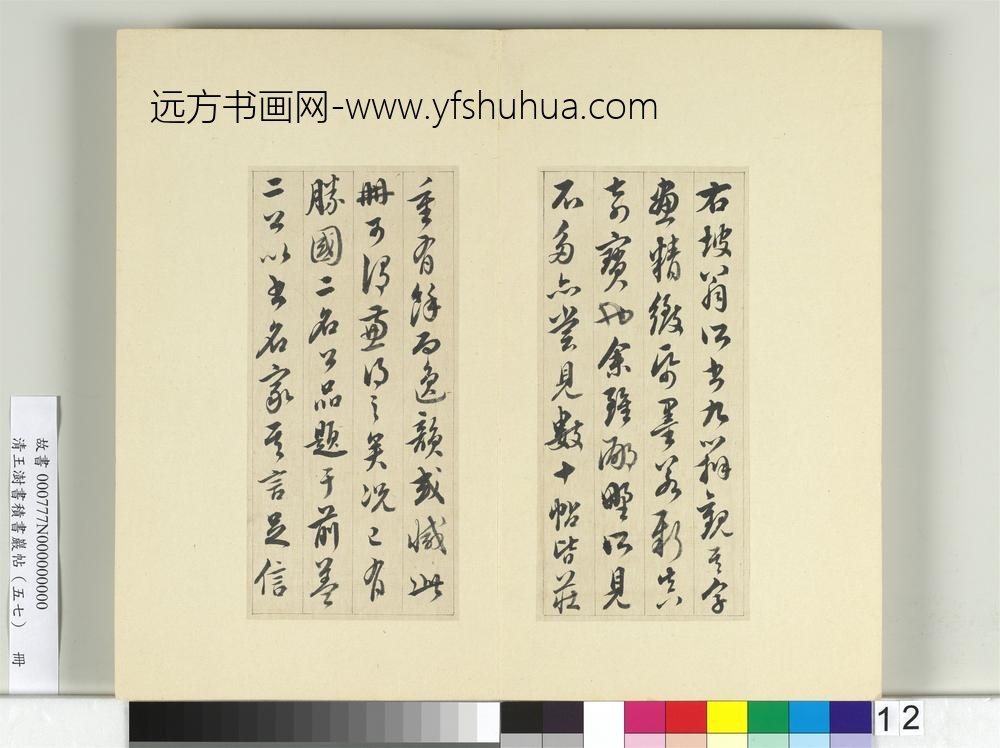 远方书画网-www.yfshuhua.com
右坡翁所書九辯觀其字
畫精緻紙墨若新真
奇寶也余雖鄙野所見
不多亦嘗見數十帖皆莊
重有餘而逸韻或減此
冊可謂兼得之矣況已有
勝國二名公品題于前蓋
二公以書名家其言足信
故書 000777N000000000
清王澍書積書巖帖（五七） 冊
12